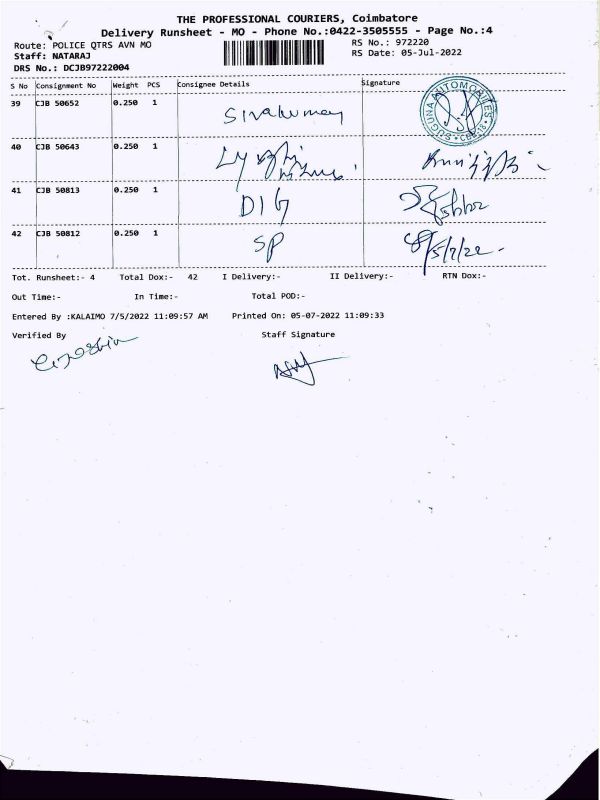 THE PROFESSIONAL COURIERS, Coimbatore
Delivery Runsheet - MO - Phone No.:0422-3505555 - Page No.:4
Route: POLICE QTRS AVN MO RS No.: 972220
Staff: NATARAJ RS Date: 05-Jul-2022
DRS No.: DCJB97222004
S No Consignment No Weight PCS Consignee Details Signature
39 CJB 50652 0.250 1 Sivakumar SUGUNA AUTOMOBILES
40 CJB 50643 0.250 1
41 CJB 50813 0.250 1 DIG
42 CJB 50812 0.250 1 SP 5/7/22
Tot. Runsheet:- 4 Total Dox:- 42 I Delivery:- II Delivery:- RTN Dox:-
Out Time:- In Time:- Total POD:-
Entered By :KALAIMO 7/5/2022 11:09:57 AM Printed On: 05-07-2022 11:09:33
Verified By Staff Signature